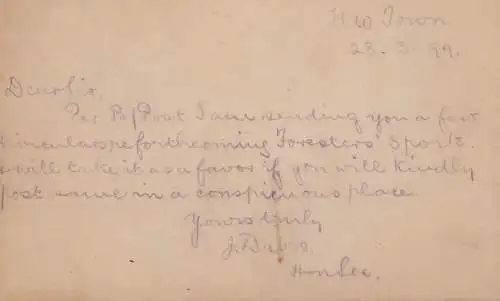 New Town
23 - 3 - 99.
Dear Sir,
Per Bk/Post I am sending you a few
circulars re forthcoming Foresters' Sports.
& will take it as a favor if you will kindly
post same in a conspicuous place.
Yours truly
J. Davis.
Hon Sec.